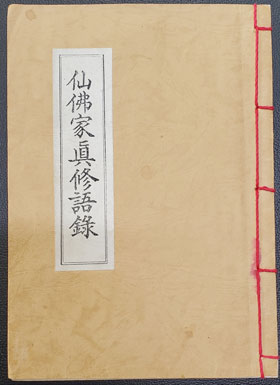 仙佛家眞修語錄